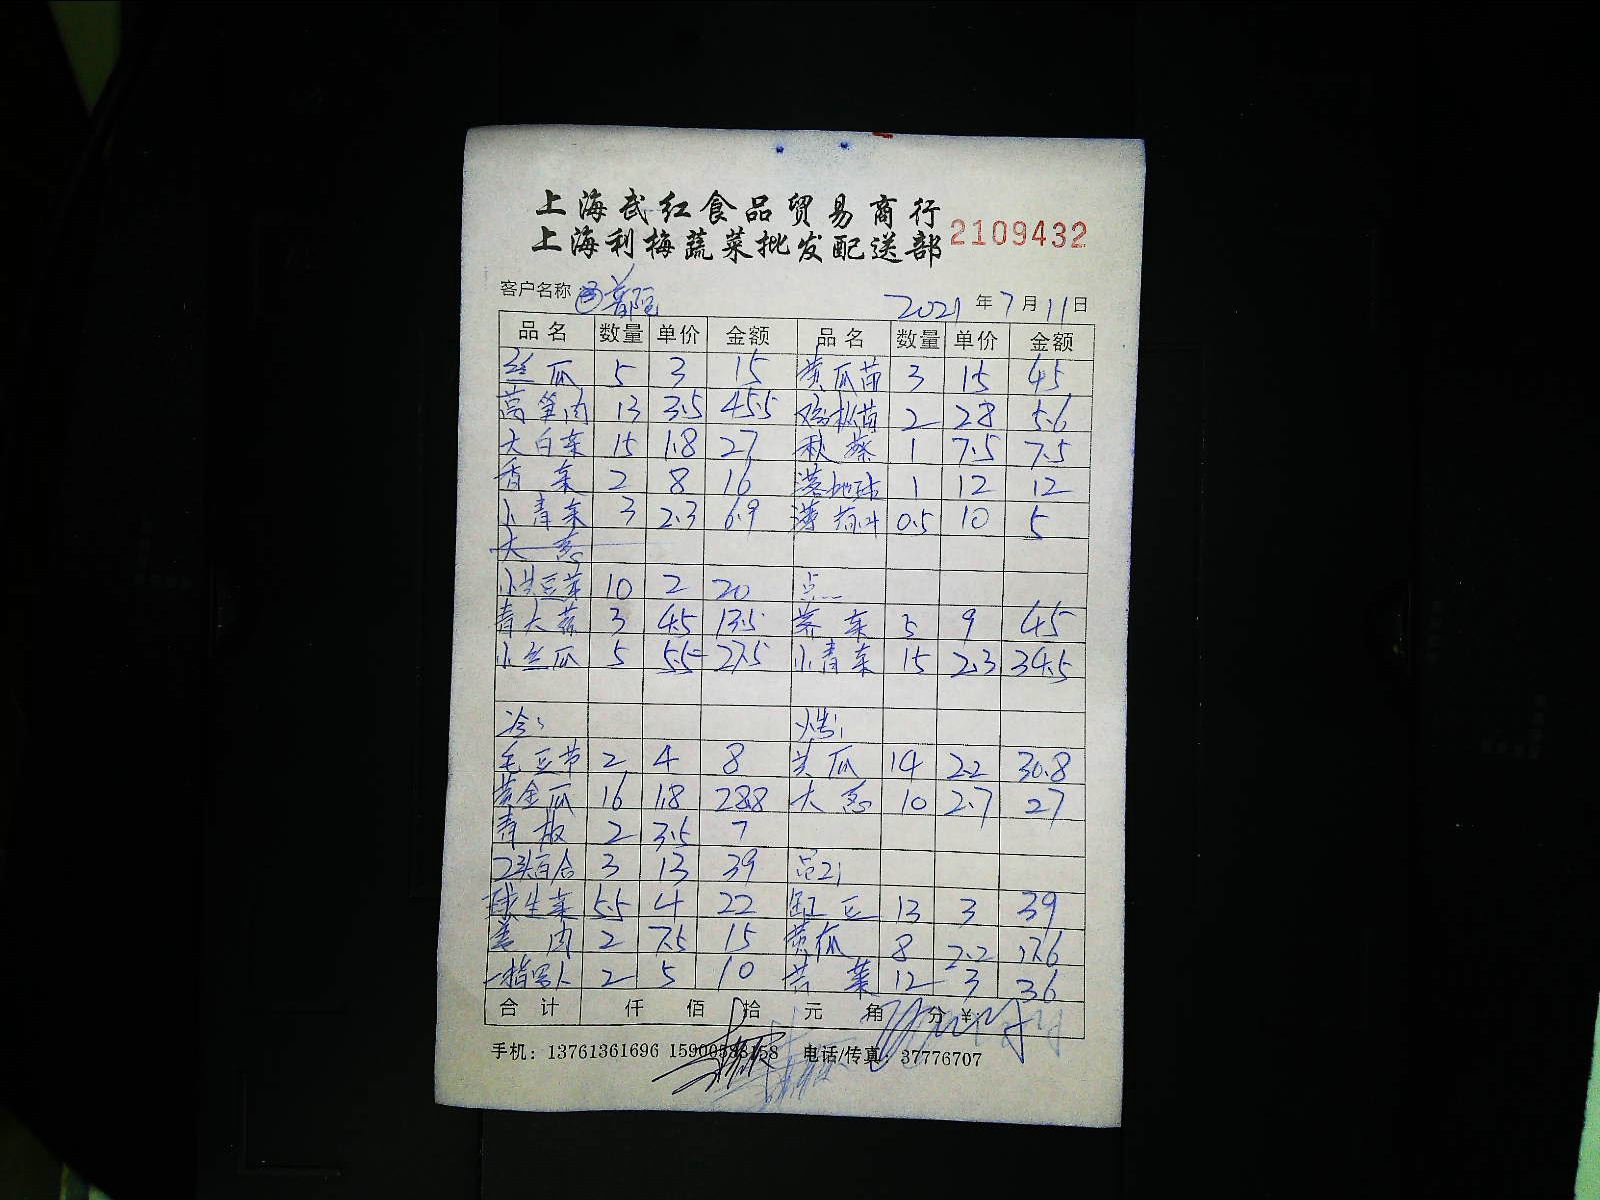 上海武红食品贸易商行
上海利梅蔬菜批发配送部 2109432
客户名称: 2021年7月11日
品名 数量 单价 金额 品名 数量 单价 金额
丝瓜 5 3 15 黄瓜苗 3 15 45
莴笋肉 13 3.5 45.5 2 28 56
大白菜 15 1.8 27 秋葵 1 7.5 7.5
香菜 2 8 16 1 12 12
小青菜 3 2.3 6.9 薄荷叶 0.5 10 5
大葱
小黄豆芽 10 2 20 点
青大蒜 3 4.5 13.5 荠菜 5 9 45
小丝瓜 5 5.5 27.5 小青菜 15 2.3 34.5
冷: 烤:
毛豆节 2 4 8 黄瓜 14 2.2 30.8
黄金瓜 16 1.8 28.8 大葱 10 2.7 27
青椒 2 3.5 7
2头百合 3 13 39
球生菜 5.5 4 22 豆 13 3 39
姜肉 2 7.5 15 黄瓜 8 2.2 17.6
2 5 10 菜 12 3 36
合计 仟 佰 拾 元 角 分 ¥:
手机: 13761361696 电话/传真: 37776707